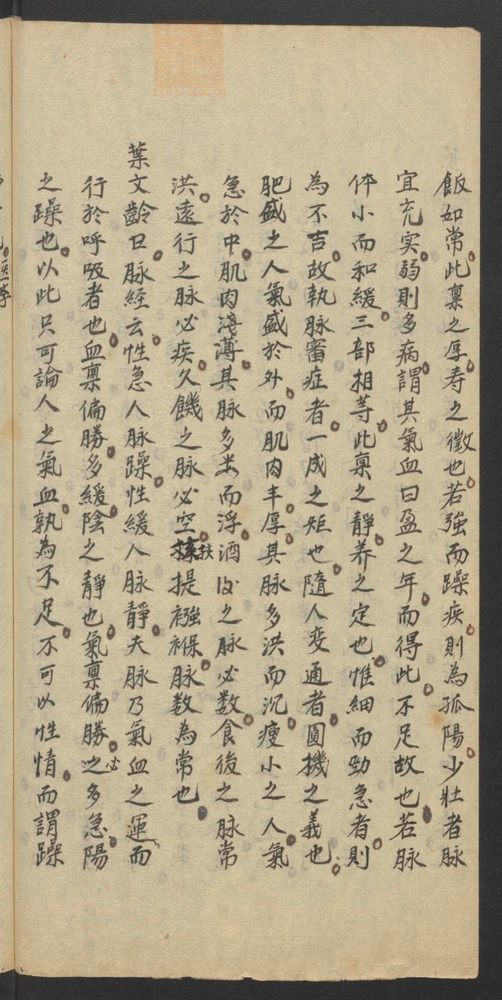 飯如常此稟之厚寿之徵也若強而躁疾則為孤陽少壯者脉
宜充实弱則多病謂其氣血日盈之年而得此不足故也若脉
小而和緩三部相等此稟之靜养之定也惟細而勁急者則
為不吉故執脉審症者一成之矩也隨人变通者圓機之義也
肥盛之人氣盛於外而肌肉丰厚其脉多洪而沉瘦小之人氣
急於中肌肉淺薄其脉多而浮酒后之脉必数食後之脉常
洪遠行之脉必疾久饑之脉必空扶提襁褓脉数為常也
葉文齡曰脉経云性急人脉躁性緩人脉靜夫脉乃氣血之運而
行於呼吸者也血稟偏勝多緩陰之靜也氣稟偏勝必多急陽
之躁也以此只可論人之氣血孰為不足不可以性情而謂躁